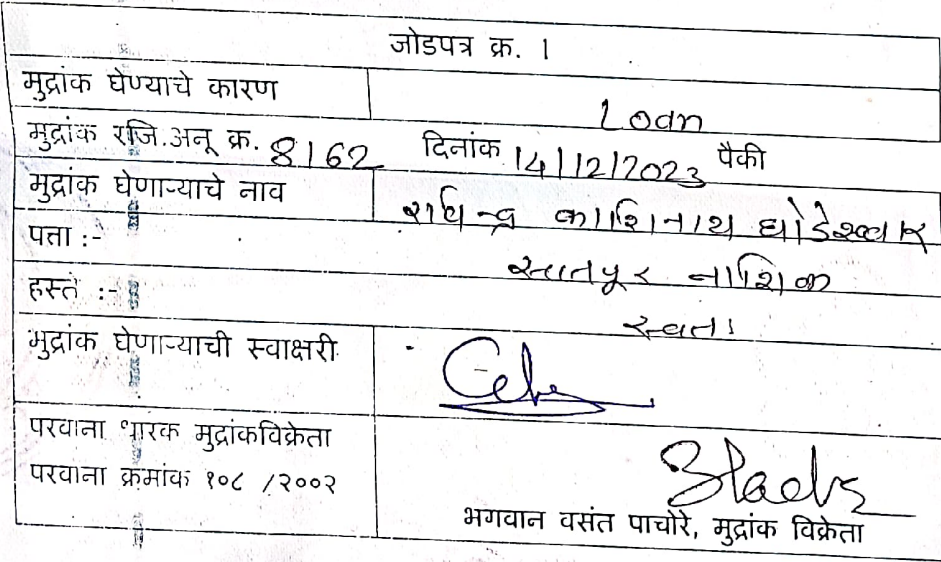 जोडपत्र क्र. 1
मुद्रांक घेण्याचे कारण Loan
मुद्रांक रजि.अनू क्र. 8162 दिनांक 14/12/2023 पैकी
मुद्रांक घेणाऱ्याचे नाव काशिनाथ
पत्ता :- सातपूर नाशिक
हस्ते :- स्वतः
मुद्रांक घेणाऱ्याची स्वाक्षरी
परवाना धारक मुद्रांकविक्रेता
परवाना क्रमांक १०८ /२००२
भगवान वसंत पाचोरे, मुद्रांक विक्रेता